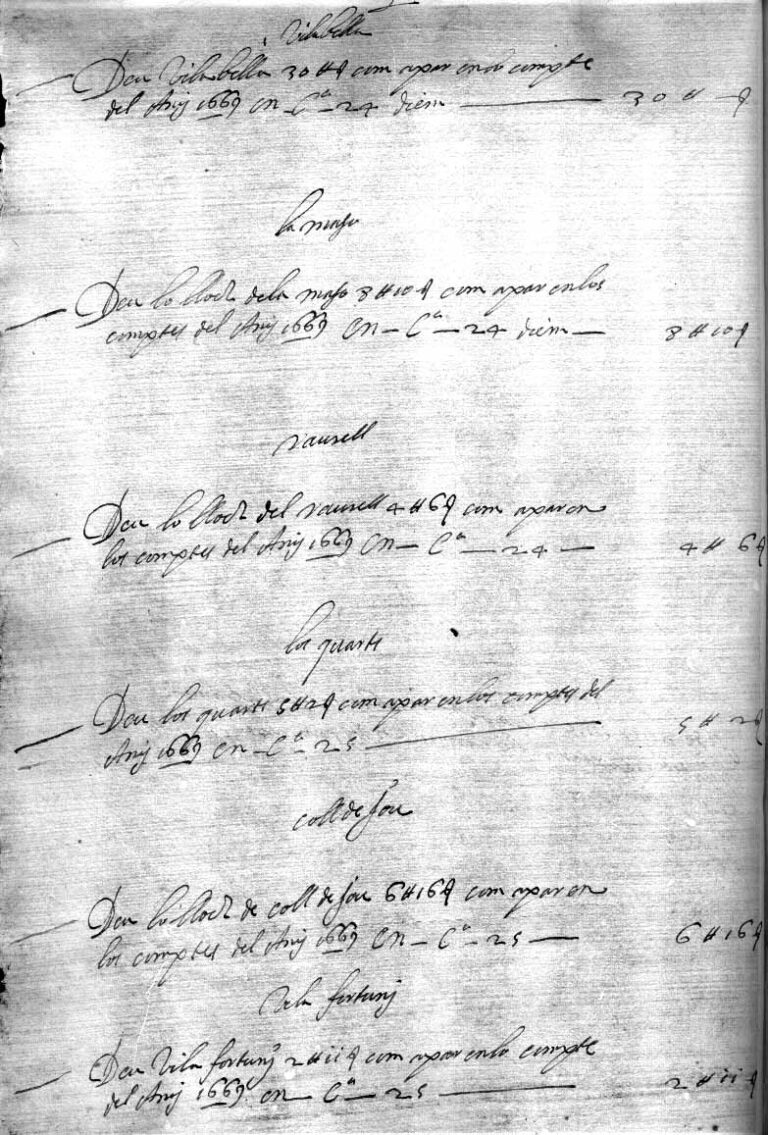 Vilabella
Deu Vilabella 30 ℔ ꝭ com apar en lo compte
del Any 1669 en C.ª 24 diem 30 ℔ ꝭ
la maso
Deu lo lloch dela maso 8 ℔ 10 ꝭ com apar en los
comptes del Any 1669 en C.ª 24 diem 8 ℔ 10 ꝭ
raurell
Deu lo lloch del raurell 4 ℔ 6 ꝭ com apar en
los comptes del Any 1669 en C.ª 24 4 ℔ 6 ꝭ
los quarts
Deu los quarts 5 ℔ 2 ꝭ com apar en los comptes del
Any 1669 en C.ª 25 5 ℔ 2 ꝭ
coll de Jou
Deu lo lloch de coll de Jou 6 ℔ 16 ꝭ com apar en
los comptes del Any 1669 en C.ª 25 6 ℔ 16 ꝭ
vila fortunj
Deu Vila fortunj 2 ℔ ii ꝭ com apar en lo compte
del Any 1669 en C.ª 25 2 ℔ ii ꝭ